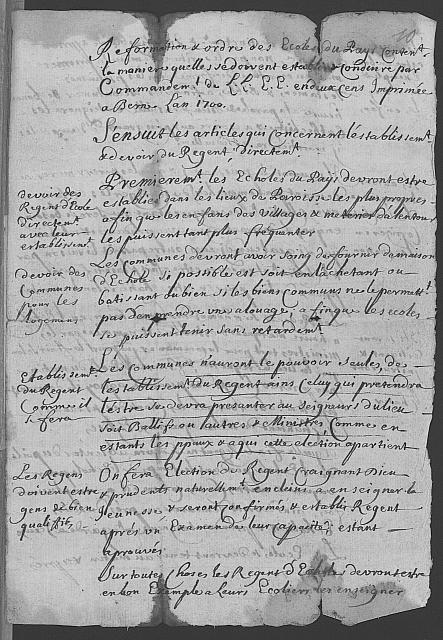 Reformation & ordre des Ecoles du Pays Content
la maniere quelles se doivent establir & conduire par
Commandemt de LL. E.E. en deux Cens Imprimée
a Berne Lan 1700.
S'ensuit les articles qui concernent lestablissemt
& devoir du Regent directemt
devoir des
Regens d'Ecole
directemt
avec leur
establissemt
Premieremt les Echoles du Pays devront estre
establies dans les lieux de Paroisse les plus propres
afin que les enfans des villages & metteries dalentour
les puissent tant plus frequenter
devoir des
Communes
pour les
logemens
Les communes devront avoir soing de fournir de maison
d'Echole si possible est soit en lachetant ou
batissant ou bien si les biens communs ne le permettt
pas d'en prendre un a louage, afin que les ecoles
se puissent tenir sans retardemt
Etablissemt
du Regent
Comme il
se fera
Les Communes n'auront le pouvoir seules, de
lestablissemt du Regent ains Celuy qui pretendra
lestre se devra presanter au seigneurs du lieu
soit Ballifs ou autres & Ministres, Comme en
estants les ppaux & a qui cette election appartient
Les Regens
doivent estre
gens de bien
qualifiés
On fera Election de Regent Craignant Dieu
& prudents naturellemt enclins a enseigner la
Jeunesse & seront confirmés & establis Regent
aprés un Examen de leur capacité estant
aprouvés
Sur toutes Choses les Regent d'Echole devront estre
en bon Exemple a Leurs Ecoliers les enseigner